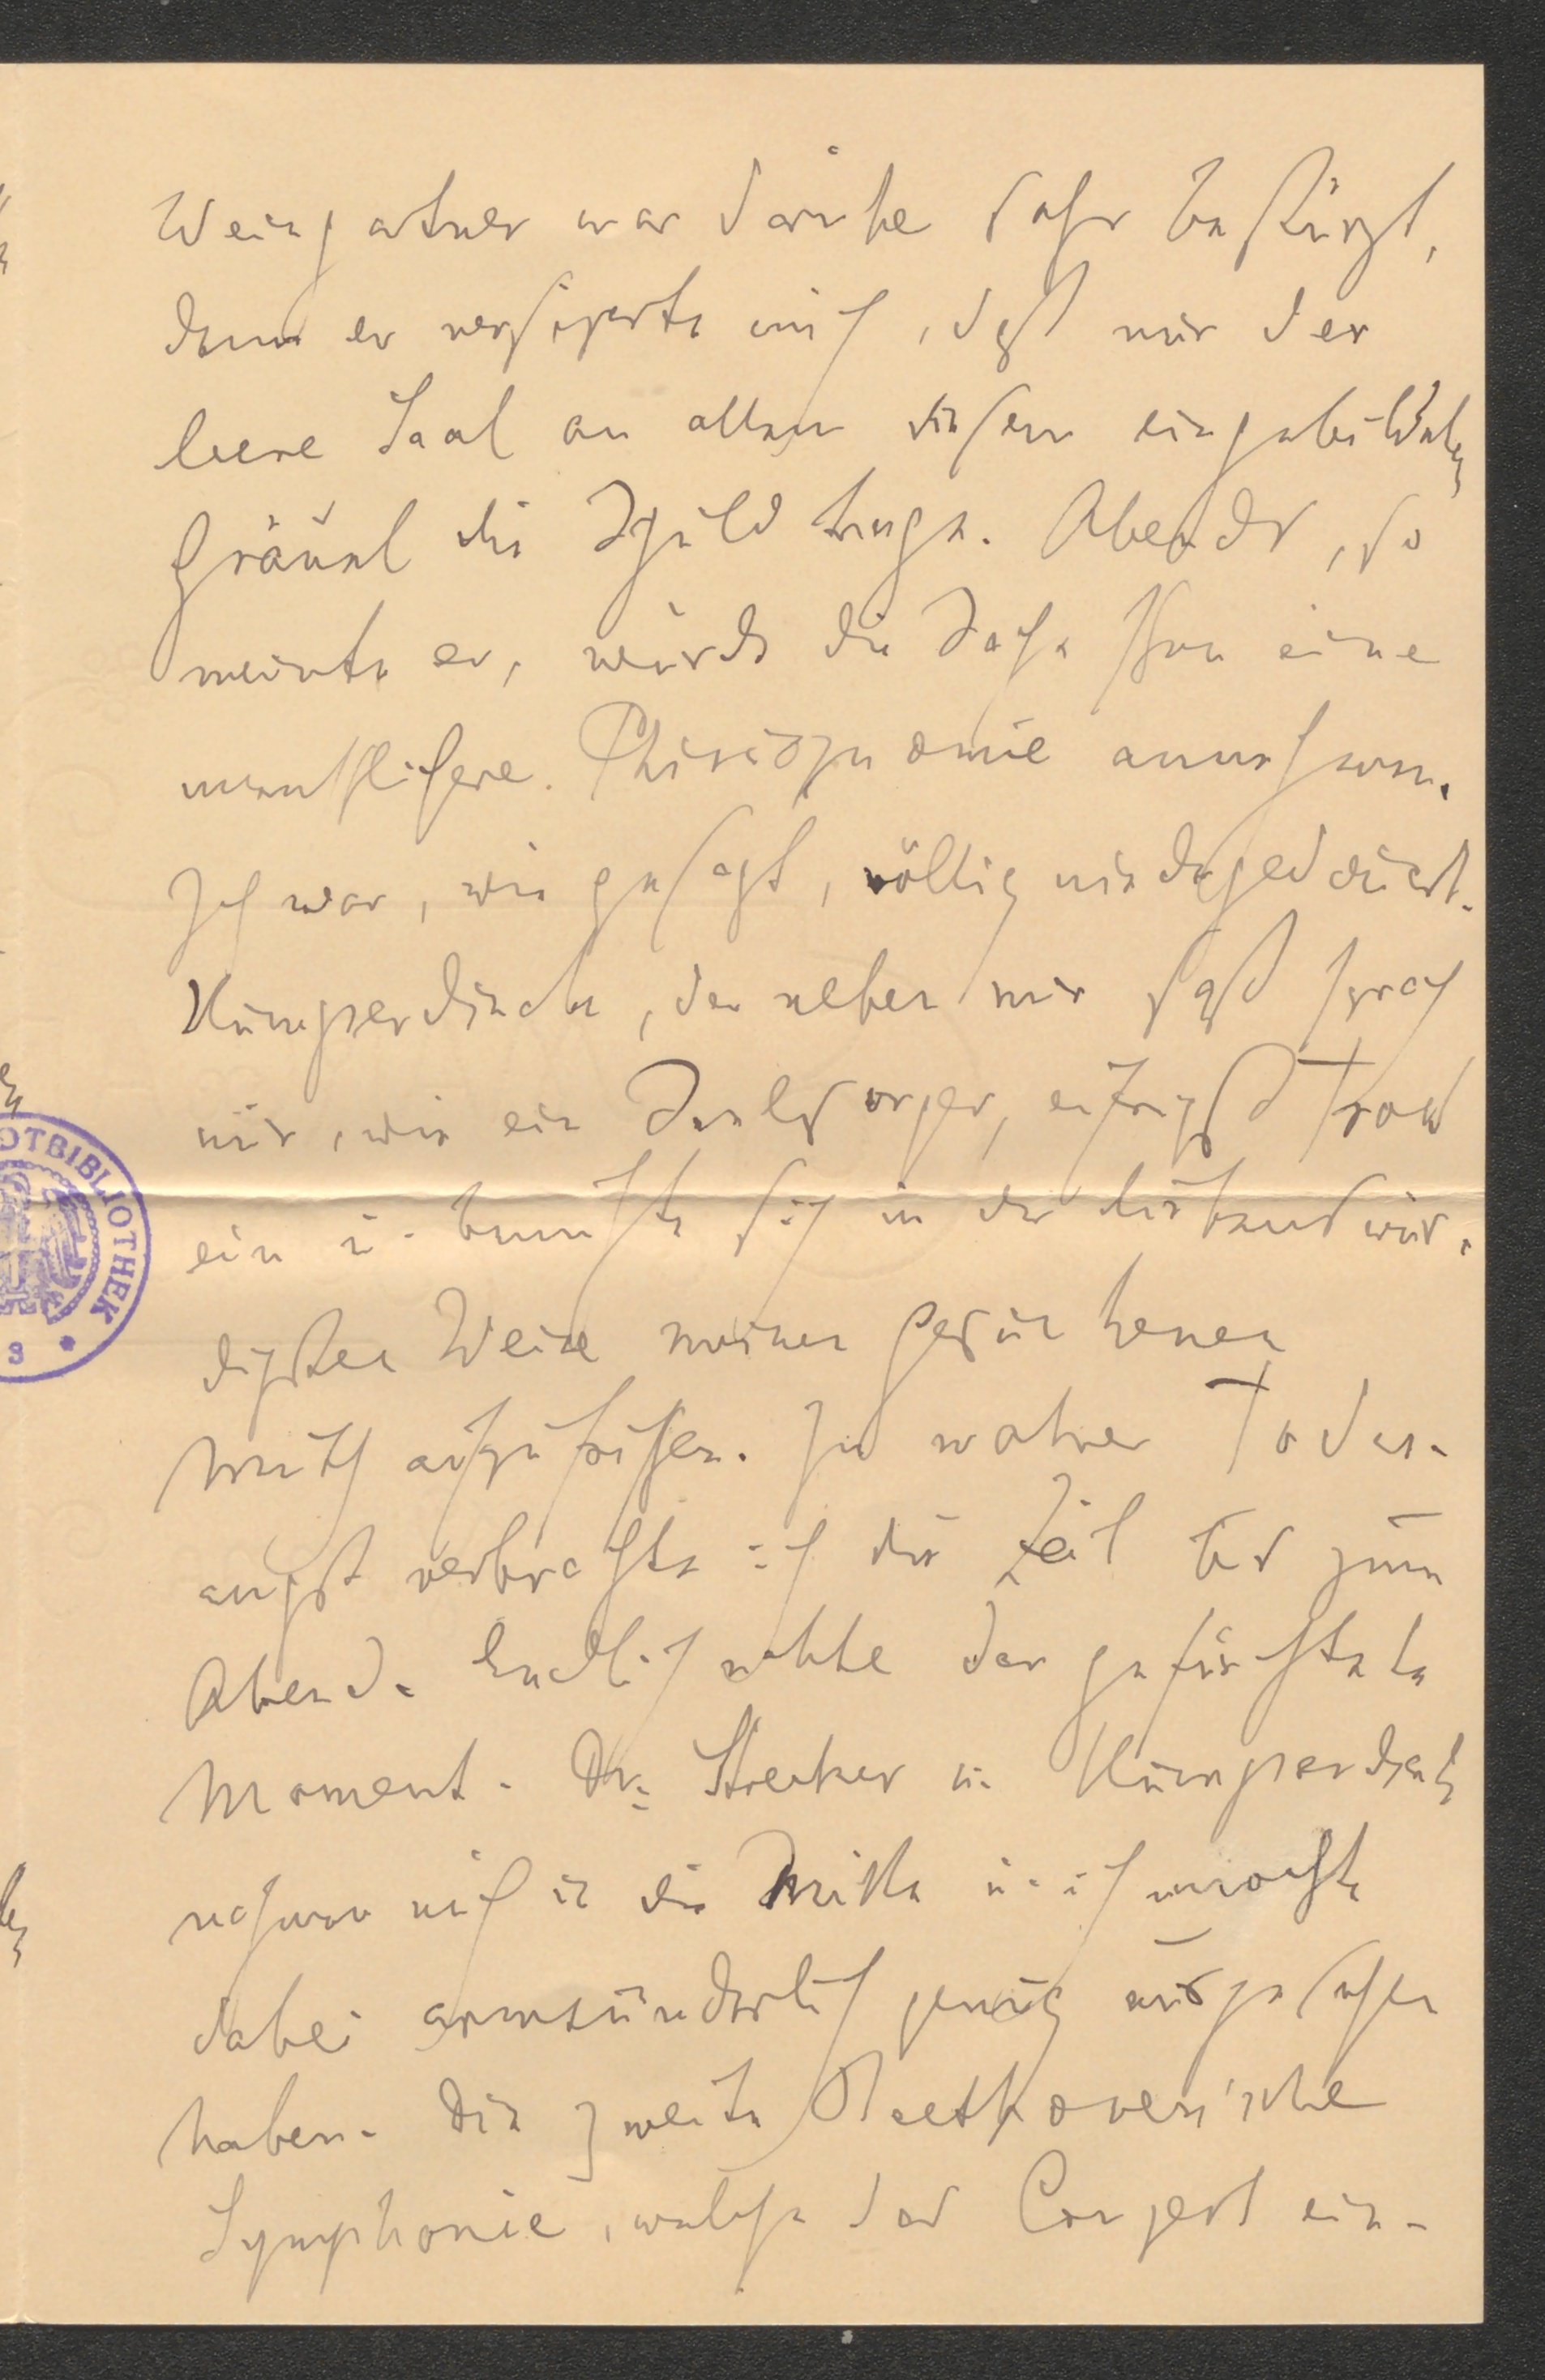 Weingartner war darüber sehr bestürzt,
denn er versicherte mich, daß nur der
leere Saal an allem diesem eingebildeten
Gräuel die Schuld trage. Abends, so
meinte er, würde die Sache schon eine
menschlichere Phisiognomie annehmen.
Ich war, wie gesagt, völlig niedergedrückt.
Humperdinck, der neben mir saß sprach
mir, wie ein Seelsorger, eifrigst Trost
ein u. bemühte sich in der liebenswür-
digsten Weise meinen gesunkenen
Muth aufzufrischen. In wahrer Todes-
angst verbrachte ich die Zeit bis zum
Abend. Endlich nahte der gefürchtete
Moment. Dr. Strecker u. Humperdinck
nahmen mich in die Mitte u. ich mochte
dabei armsünderlich genug ausgesehen
haben. Die zweite Beethoven'sche
Symphonie, welche das Conzert ein-
OTBIBLIOTHEK